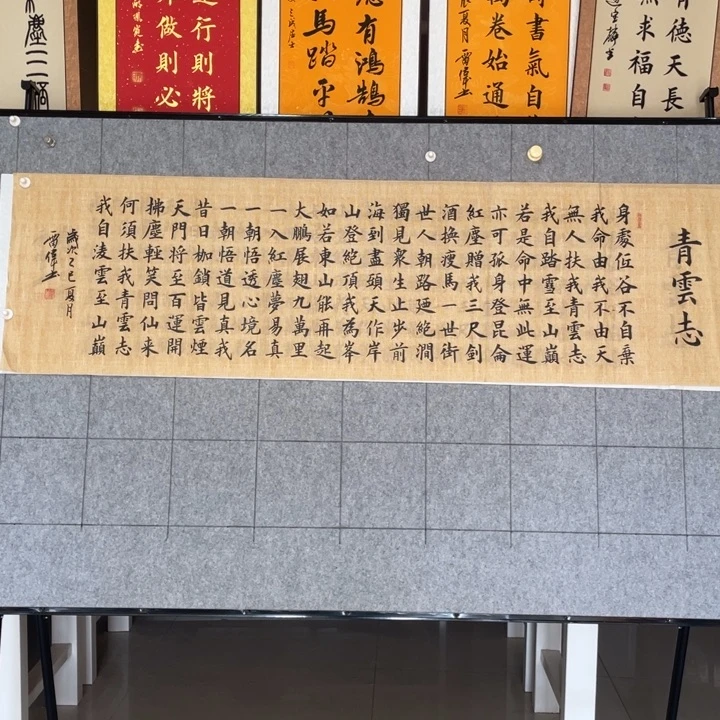 有德天長
無求福自
書氣自
卷始通
辰夏月 雷偉书
應有鴻鵠
馬踏平
行則將
做則必
塵二三
青雲志
身處低谷不自棄
我命由我不由天
無人扶我青雲志
我自踏雪至山巔
若是命中無此運
亦可孤身登昆侖
紅塵贈我三尺劍
酒換瘦馬一世街
世人朝路廻絕澗
獨見衆生止步前
海到盡頭天作岸
山登絕頂我為峯
如若東山能再起
大鵬展翅九萬里
一入紅塵夢易真
一朝悟透心境名
一朝悟道見真我
昔日枷鎖皆雲煙
天門將至百運開
拂塵輕笑問仙来
何須扶我青雲志
我自凌雲至山巔
歲次乙巳夏月
雷偉书